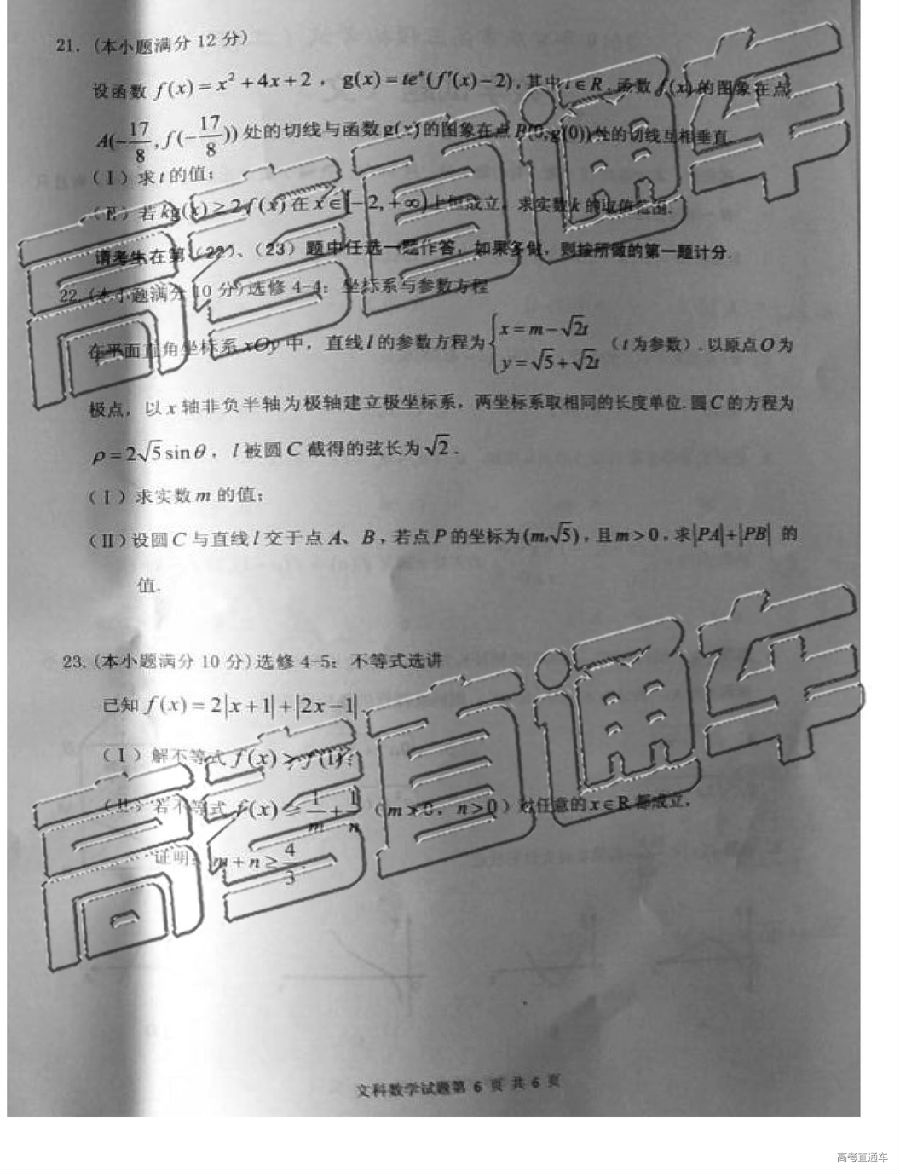 21. (本小题满分 12 分)
设函数 f(x) = x² + 4x + 2 , g(x) = teˣ(f′(x) − 2), 其中 t ∈ R . 函数 f(x) 的图象在点
A(−17/8 , f(−17/8)) 处的切线与函数 g(x) 的图象在点 B(0, g(0)) 处的切线互相垂直.
(Ⅰ) 求 t 的值;
(Ⅱ) 若 kg(x) ≥ 2f(x) 在 x ∈ [−2, +∞) 上恒成立, 求实数 k 的取值范围.
请考生在第 (22)、(23) 题中任选一题作答, 如果多做, 则按所做的第一题计分.
22. (本小题满分 10 分) 选修 4-4: 坐标系与参数方程
在平面直角坐标系 xOy 中, 直线 l 的参数方程为 { x = m − √2t y = √5 + √2t (t 为参数) . 以原点 O 为
极点, 以 x 轴非负半轴为极轴建立极坐标系, 两坐标系取相同的长度单位. 圆 C 的方程为
ρ = 2√5 sin θ , l 被圆 C 截得的弦长为 √2 .
(Ⅰ) 求实数 m 的值;
(Ⅱ) 设圆 C 与直线 l 交于点 A、B , 若点 P 的坐标为 (m, √5) , 且 m > 0 , 求 |PA| + |PB| 的
值.
23. (本小题满分 10 分) 选修 4-5: 不等式选讲
已知 f(x) = 2|x + 1| + |2x − 1| .
(Ⅰ) 解不等式 f(x) > f(1) ;
(Ⅱ) 若不等式 f(x) ≥ 1/m + 1/n ( m > 0, n > 0 ) 对任意的 x ∈ R 都成立,
证明: m + n ≥ 4/3 .
文科数学试题第 6 页 共 6 页
高考直通车
高考直通车
高考直通车